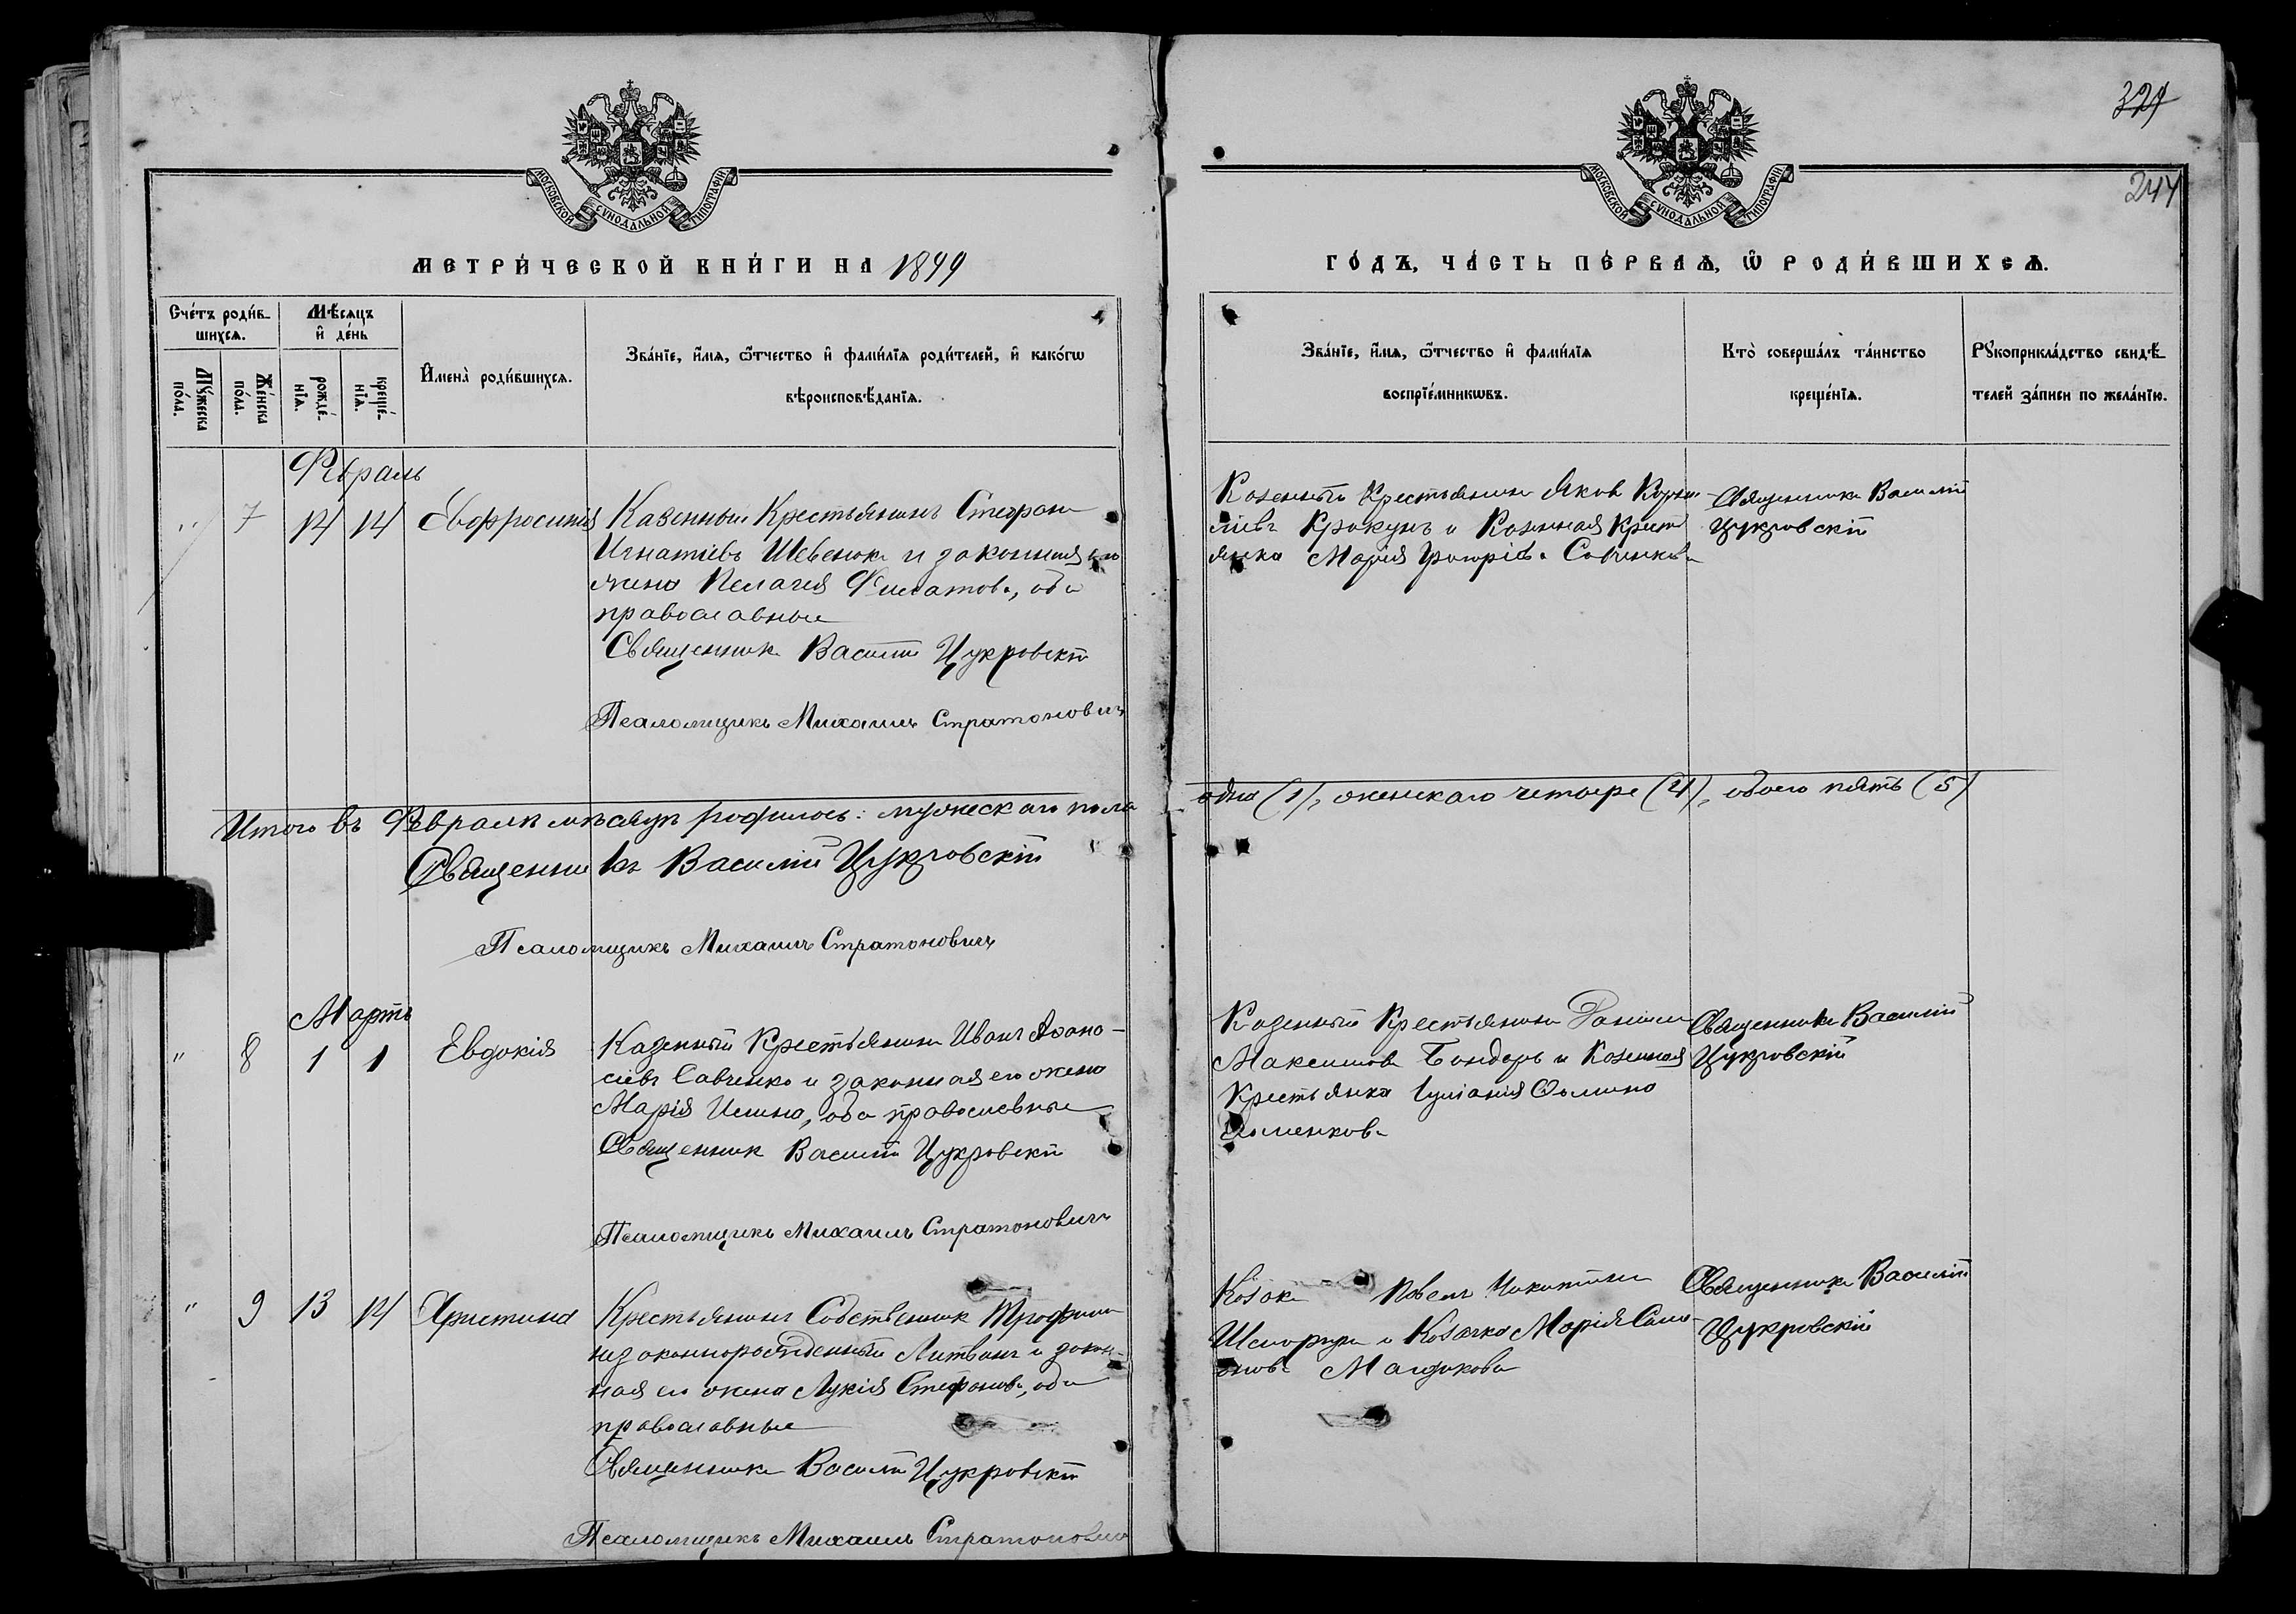 327
244
МОСКОВСКОЙ СѴНОДАЛЬНОЙ ТИПОГРАФІИ
МОСКОВСКОЙ СѴНОДАЛЬНОЙ ТИПОГРАФІИ
МЕТРИ́ЧЕСКОЙ КНИ́ГИ НА 1899
ГО́ДЪ, ЧА́СТЬ ПЕ́РВАѦ, Ѡ РОДИ́ВШИХСѦ.
Сче́тъ роди́в-
шихсѧ.
Мꙋ́жеска
по́ла.
Же́нска
по́ла.
Мѣ́сѧцъ
и҆ де́нь
рожде́-
нїѧ.
креще́-
нїѧ.
И҆мена̀ роди́вшихсѧ.
Зва́нїе, и҆́мѧ, ѻ҆́тчество и҆ фами́лїѧ роди́телей, и҆ како́гѡ
вѣроисповѣ́данїѧ.
Зва́нїе, и҆́мѧ, ѻ҆́тчество и҆ фами́лїѧ
воспрїе́мникѡвъ.
Кто̀ соверша́лъ та́инство
креще́нїѧ.
Рꙋкоприкла́дство свидѣ́-
телей за́писи по жела́нїю.
Февраль
" 7 14 14 Евфросинія
Казенный Крестьянинъ Стефанъ
Игнатіевъ Шевенокъ и законная его
жена Пелагея Филатова, оба
православные
Священникъ Василій Цукровскій
Псаломщикъ Михаилъ Стратоновичъ
Казенный Крестьянинъ Яков Корни-
ліевъ Крокунъ и Казенная Крест
янка Марія Григорієва Савенкова
Священникъ Василій
Цукровскій
Итого въ Февралѣ мѣсяцѣ родилось: мужескаго пола одна (1), женскаго четыре (4), обоего пять (5)
Священникъ Василій Цукровскій
Псаломщикъ Михаилъ Стратоновичъ
Мартъ
" 8 1 1 Евдокія
Казенный Крестьянинъ Иванъ Афана-
сіевъ Савченко и законная его жена
Марія Ильина, оба православные
Священник Василій Цукровскій
Псаломщикъ Михаилъ Стратоновичъ
Казенный Крестьянинъ Даніилъ
Максимовъ Бондарь и Казенная
Крестьянка Іуліанія Фомина
Священникъ Василій
Цукровскій
" 9 13 14 Христина
Крестьянинъ Собственник Трофимъ
незаконнорожденный Литвинъ и закон-
ная его жена Лукія Стефанова, оба
православные
Священникъ Василій Цукровскій
Псаломщикъ Михаилъ Стратоновичъ
Козакъ Павелъ Никитинъ
и Козачка Марія Само-
йлова
Священникъ Василій
Цукровскій